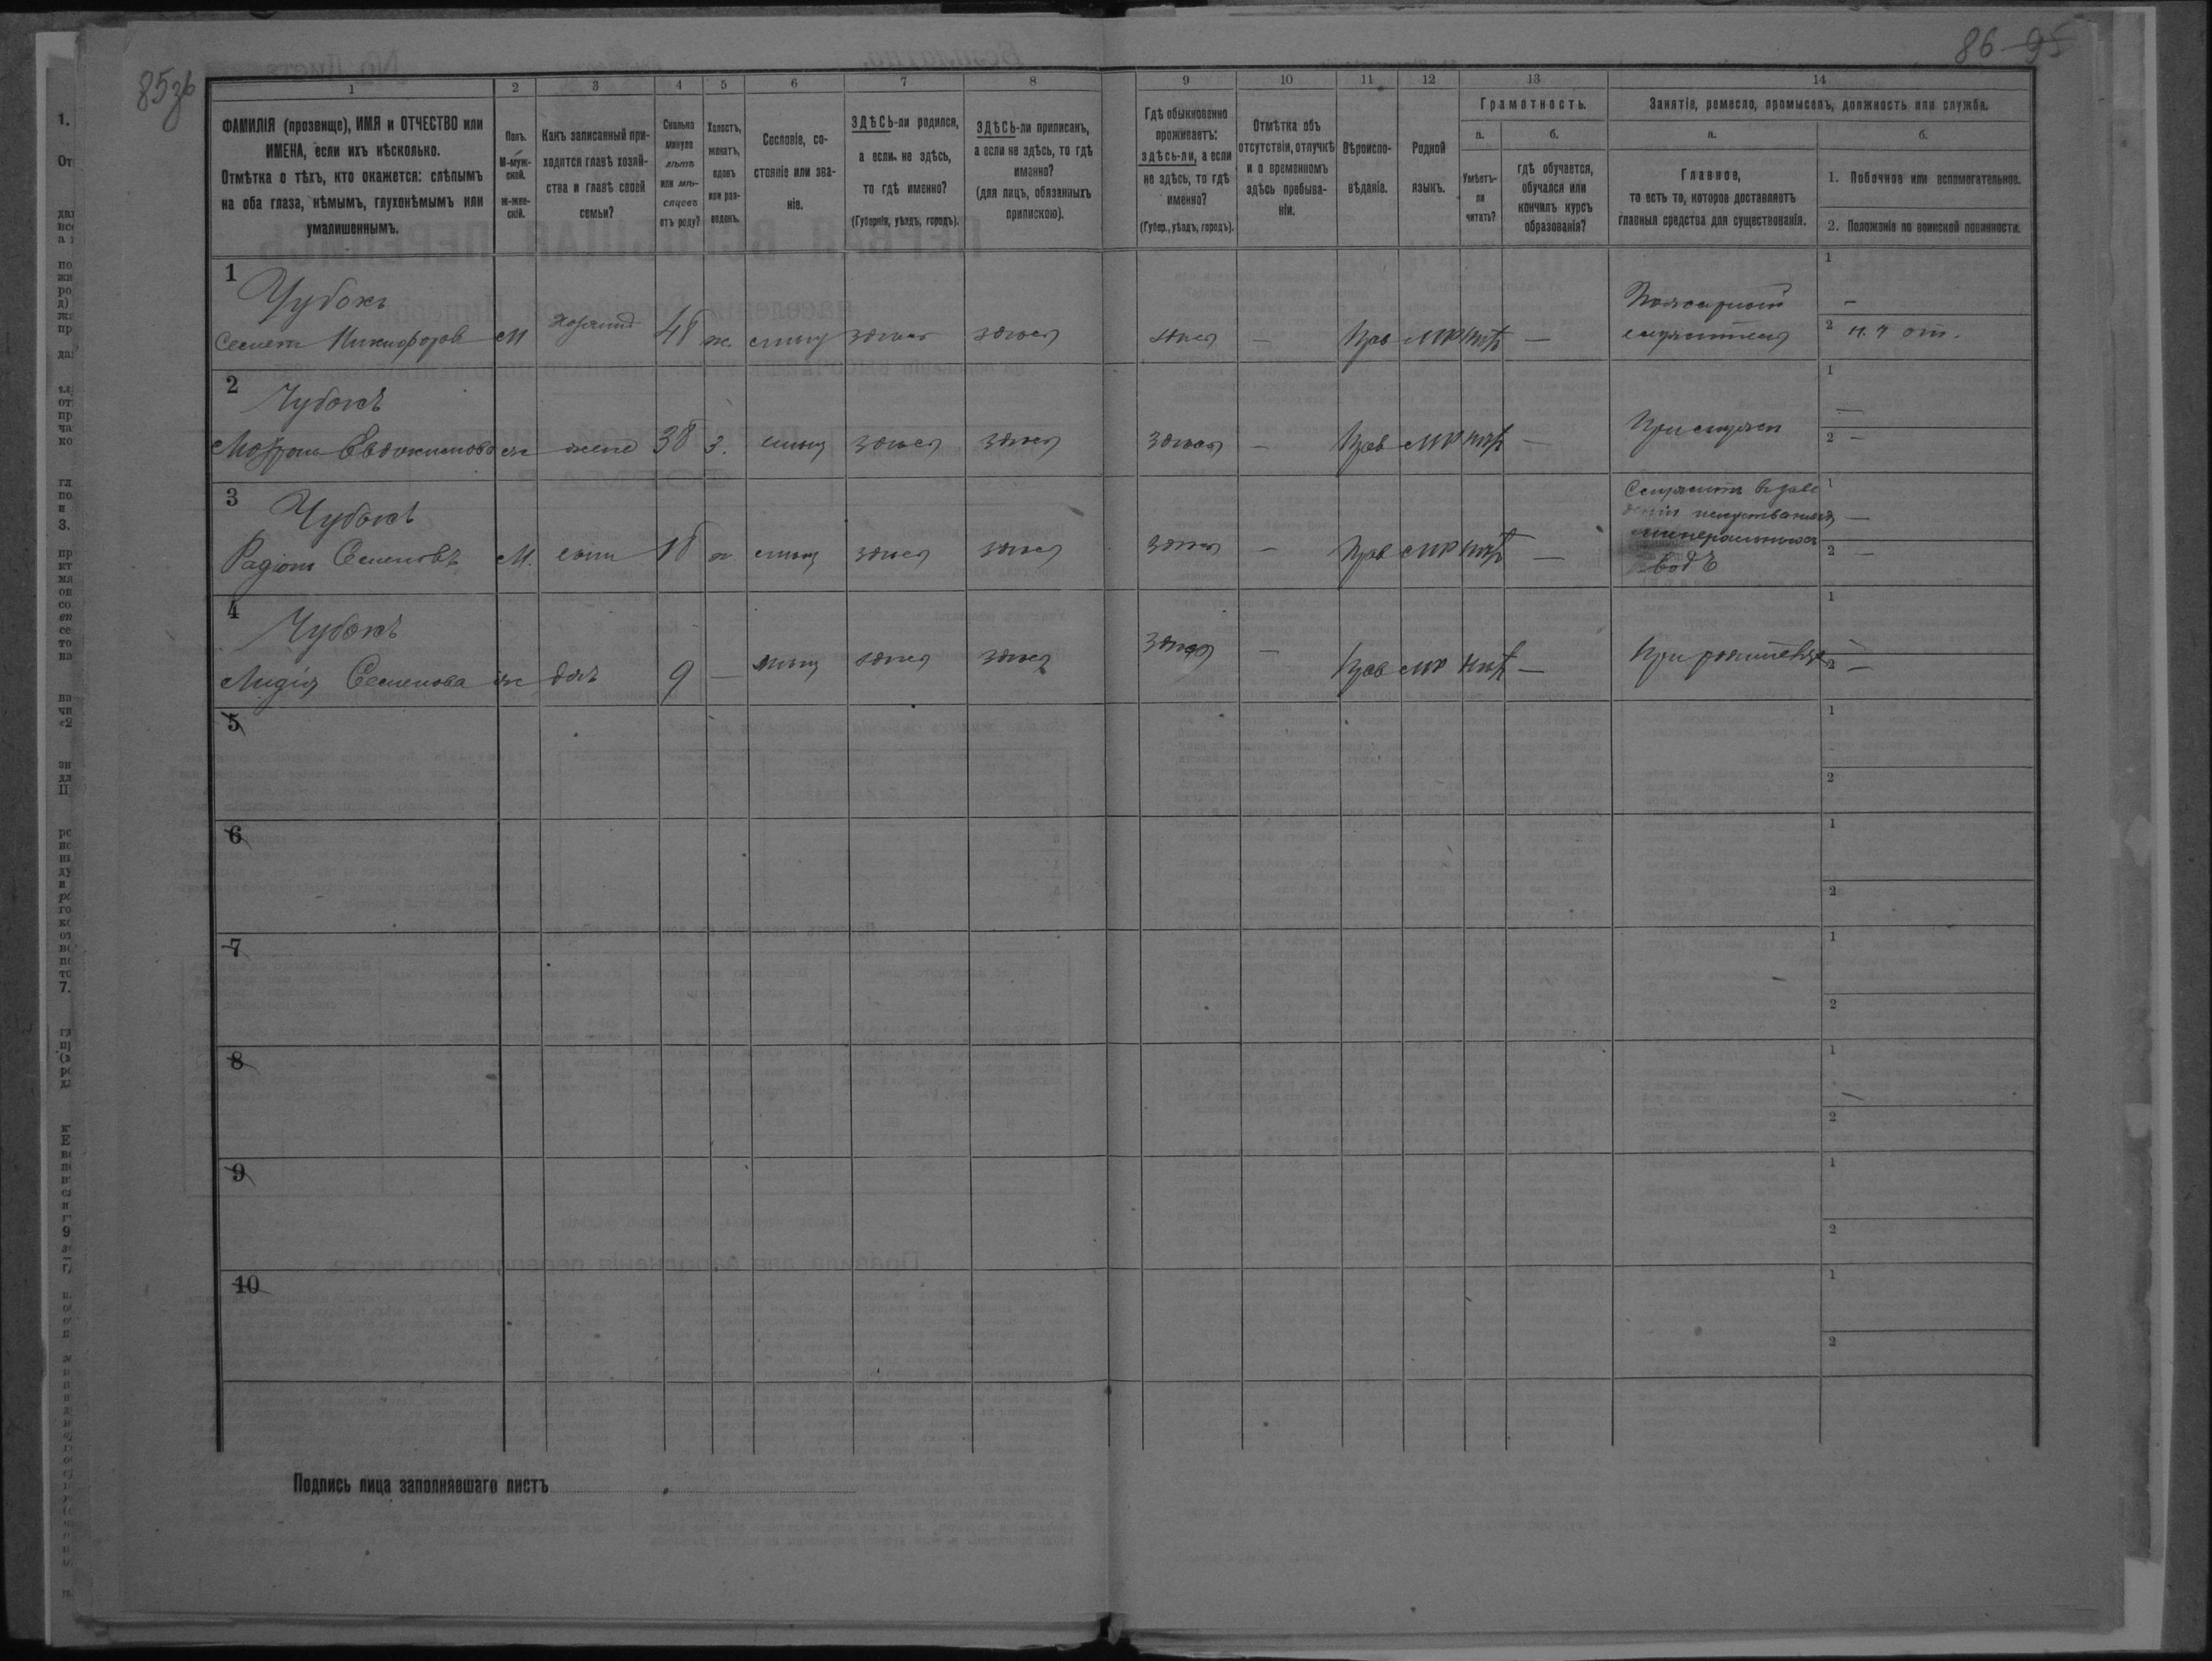 85зв
86 95
1 2 3 4 5 6 7 8 9 10 11 12 13 14
ФАМИЛІЯ (прозвище), ИМЯ и ОТЧЕСТВО или
ИМЕНА, если ихъ нѣсколько.
Отмѣтка о тѣхъ, кто окажется: слѣпымъ
на оба глаза, нѣмымъ, глухонѣмымъ или
умалишеннымъ.
Полъ.
М-муж-
ской.
ж-жен-
скій.
Какъ записанный при-
ходится главѣ хозяй-
ства и главѣ своей
семьи?
Сколько
минуло
лѣтъ
или мѣ-
сяцевъ
отъ роду?
Холостъ,
женатъ,
вдовъ
или раз-
веденъ.
Сословіе, со-
стояніе или зва-
ніе.
ЗДѢСЬ-ли родился,
а если не здѣсь,
то гдѣ именно?
(Губернія, уѣздъ, городъ).
ЗДѢСЬ-ли приписанъ,
а если не здѣсь, то гдѣ
именно?
(для лицъ, обязанныхъ
припискою).
Гдѣ обыкновенно
проживаетъ:
здѣсь-ли, а если
не здѣсь, то гдѣ
именно?
(Губер., уѣздъ, городъ).
Отмѣтка объ
отсутствіи, отлучкѣ
и о временномъ
здѣсь пребыва-
ніи.
Вѣроиспо-
вѣданіе.
Родной
языкъ.
Грамотность.
а.
Умѣетъ-
ли
читать?
б.
гдѣ обучается,
обучался или
кончилъ курсъ
образованія?
Занятіе, ремесло, промыселъ, должность или служба.
а.
Главное,
то есть то, которое доставляетъ
главныя средства для существованія.
б.
1. Побочное или вспомогательное.
2. Положеніе по воинской повинности.
1
Чубокъ
Семенъ Никифоровъ М хозяинъ ж. здѣсь здѣсь здѣсь — Прав МР нѣтъ —
Пожарный
служитель
1 —
2 н. ч от.
2
Чубокъ
Матрона Евдокимова ж жена 38 з. здѣсь здѣсь здѣсь — Прав МР нѣтъ —
При мужѣ
1 —
2 —
3
Чубокъ
Радіонъ Семеновъ М. сынъ х здѣсь здѣсь здѣсь — Прав МР нѣтъ —
Служитъ въ заве
деніи искуственныхъ
минеральныхъ
водъ
1 —
2 —
4
Чубокъ
Лидія Семенова ж дочь 9 — здѣсь здѣсь здѣсь — Прав МР нѣтъ —
При родителяхъ
1 —
2 —
5
1
2
6
1
2
7
1
2
8
1
2
9
1
2
10
1
2
Подпись лица заполнявшаго листъ